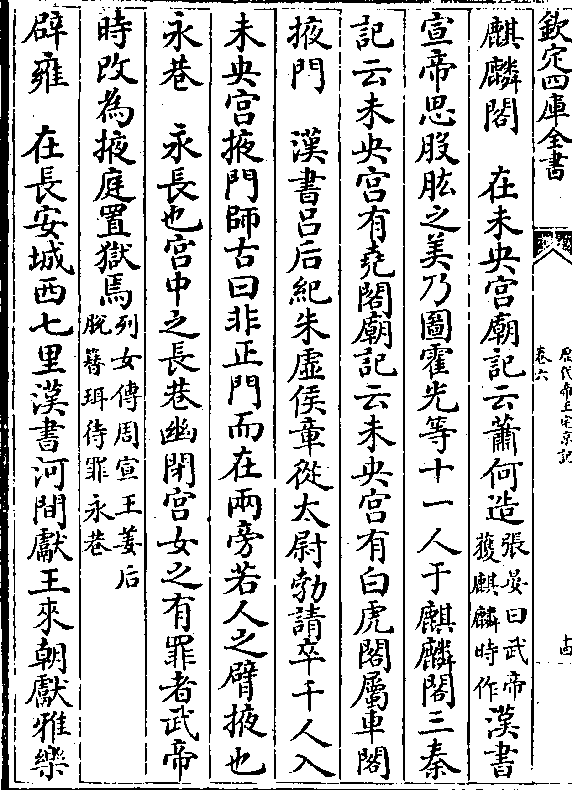 欽定四庫全書
歷代帝王宅京記
卷六
十四
麒麟閣　在未央宫廟記云蕭何造張晏曰武帝獲麒麟時作漢書
宣帝思股肱之美乃圖霍光等十一人于麒麟閣三秦
記云未央宫有堯閣廟記云未央宫有白虎閣屬車閣
掖門　漢書吕后紀朱虚侯章從太尉勃請卒千人入
未央宫掖門師古曰非正門而在兩旁若人之臂掖也
永巷　永長也宫中之長巷幽閉宫女之有罪者武帝
時改為掖庭置獄焉列女傳周宣王姜后脱簪珥待罪永巷
辟雍　在長安城西七里漢書河間獻王來朝獻雅樂